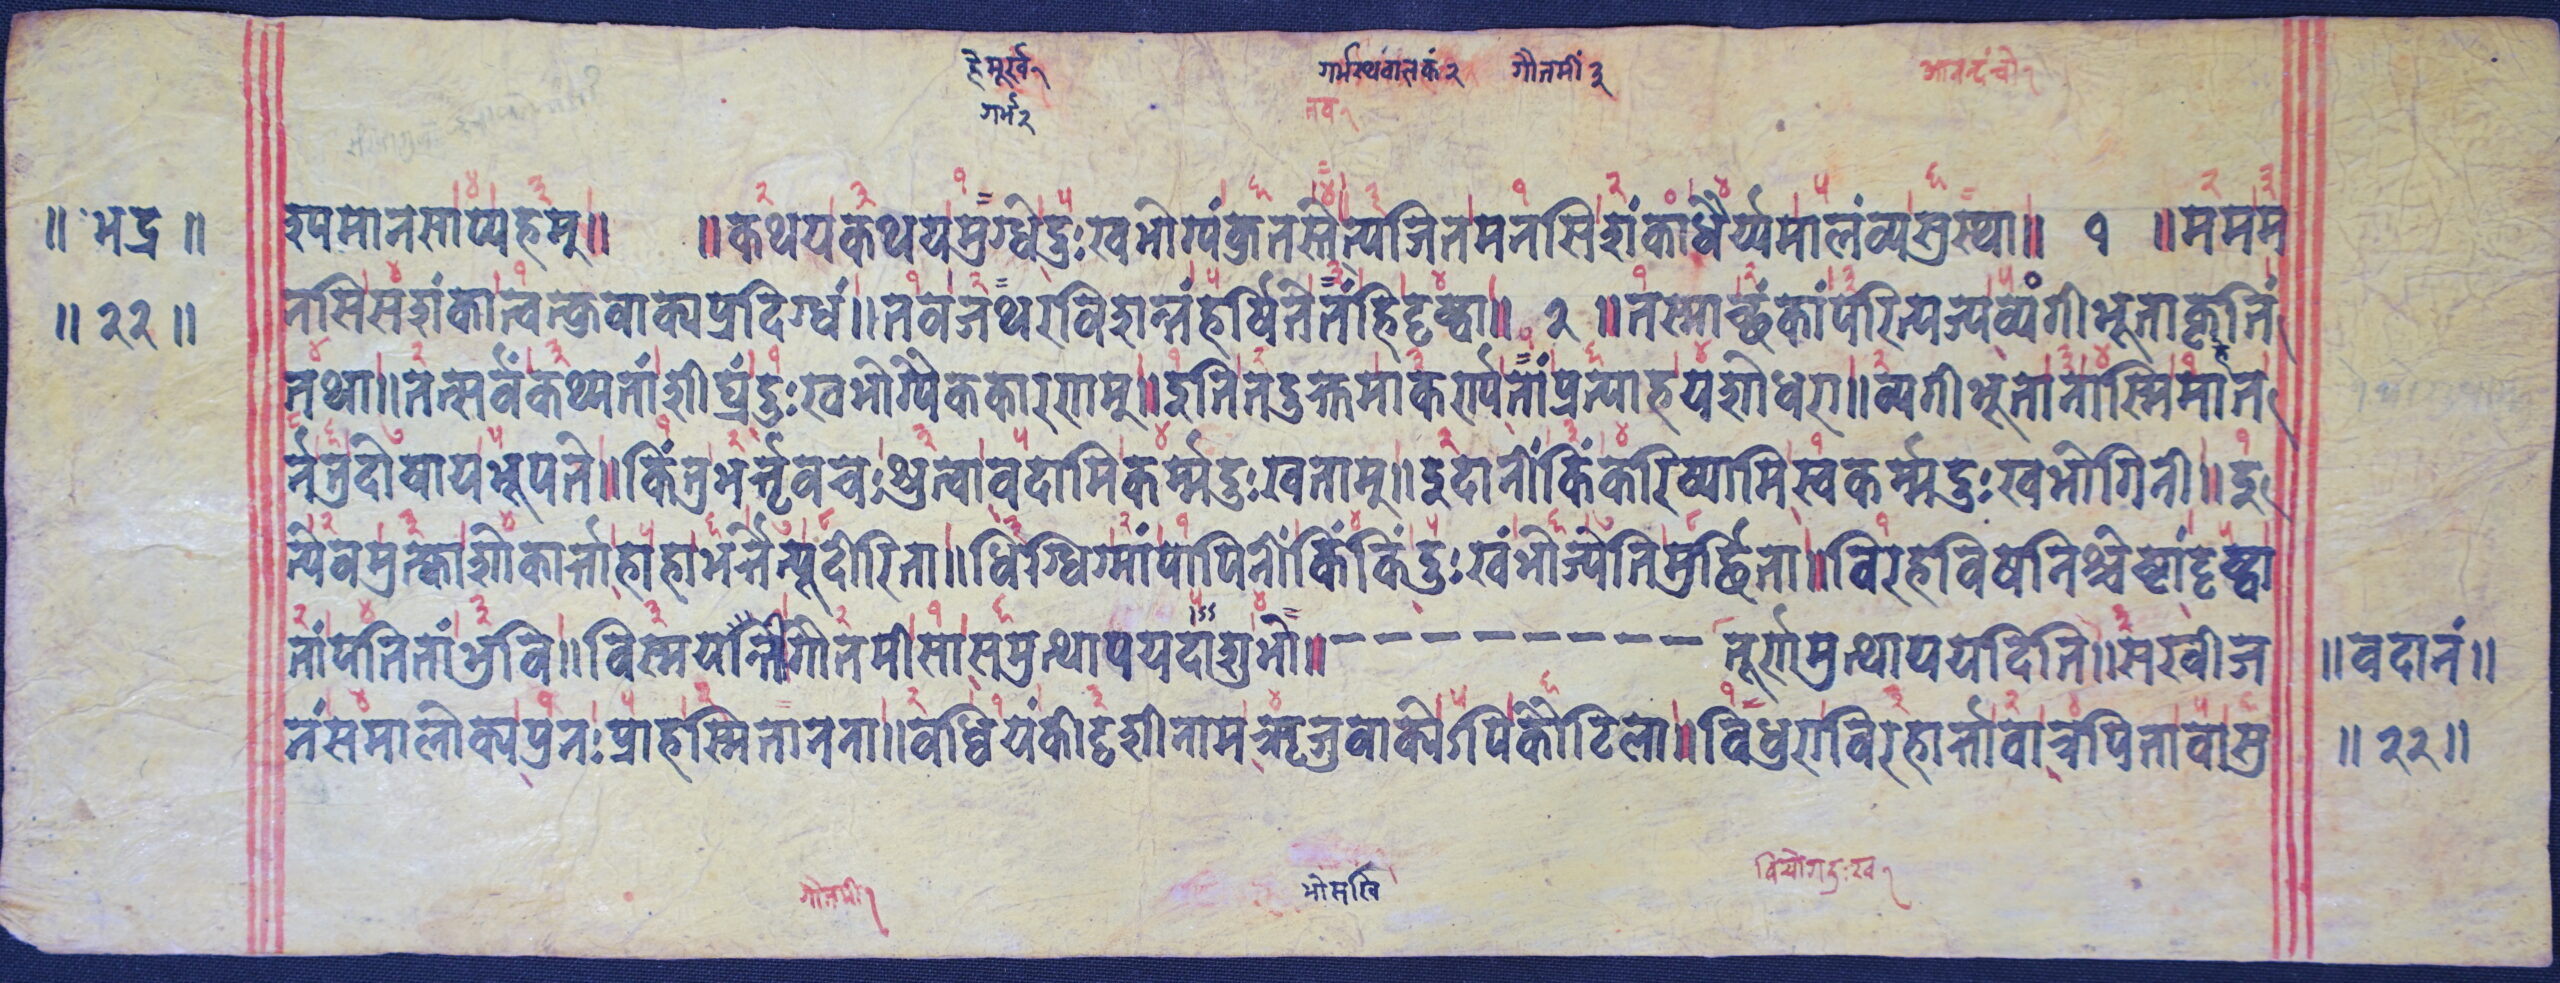 हेमूर्ख१ गर्भस्थंबालकं२ गौतमीं ३ आनन्दंचो१
गर्भं२ नव१
॥ भद्र ॥ रुपमानसाप्यहम्॥ ॥कथयकथयमुग्धेदुःखभोग्यंकृतस्तेत्यजितमनसिशंकांधैर्य्यमालंव्यसुस्था॥ १ ॥ममम
॥ २२ ॥ नसिसशंकात्वन्त्कवाक्यप्रदिग्धं॥तवजथरविशन्तंहर्षितेतंहिदृष्ट्वा॥ २ ॥तस्माच्छंकांपरित्यज्यव्यंगीभूताकृतिं
तथा॥तत्सर्वंकथ्यतांशीघ्रंदुःखभोग्यैककारणम्॥इतितदुक्तमाकर्ण्यतांप्रत्याहयशोधरा॥व्यगीभूतानास्मिमात
र्नतुदोषायभूपते॥किंतुभर्त्तृवचःश्रुत्वावदामिकर्म्मदुःखताम्॥इदानींकिंकरिष्यामिस्वकर्म्मदुःखभोगिनी॥इ
त्येवमुत्क्वाशोकार्त्ताहाहाभर्त्तेत्युदीरिता॥धिग्धिग्मांपापिनींकिंकिंदुःखंभोज्येतिमुर्छिता॥विरहविषनिश्चेष्टांदृष्ट्वा
तांपतितांभुवि॥विस्मयन्तीगौतमीसासमुत्थापयदाशुभो॥ – – – – – – – – तूर्णमुत्थापयदिति॥सखीज ॥वदानं॥
नंसमालोक्यपुनःप्राहस्मितानना॥वध्वियंकीदृशीनामऋजुवाक्येऽपिकौटिला॥विधुराविरहार्त्तावाच्रपितावासु ॥ २२॥
गौतमी१ भोसखि वियोगदुःख१